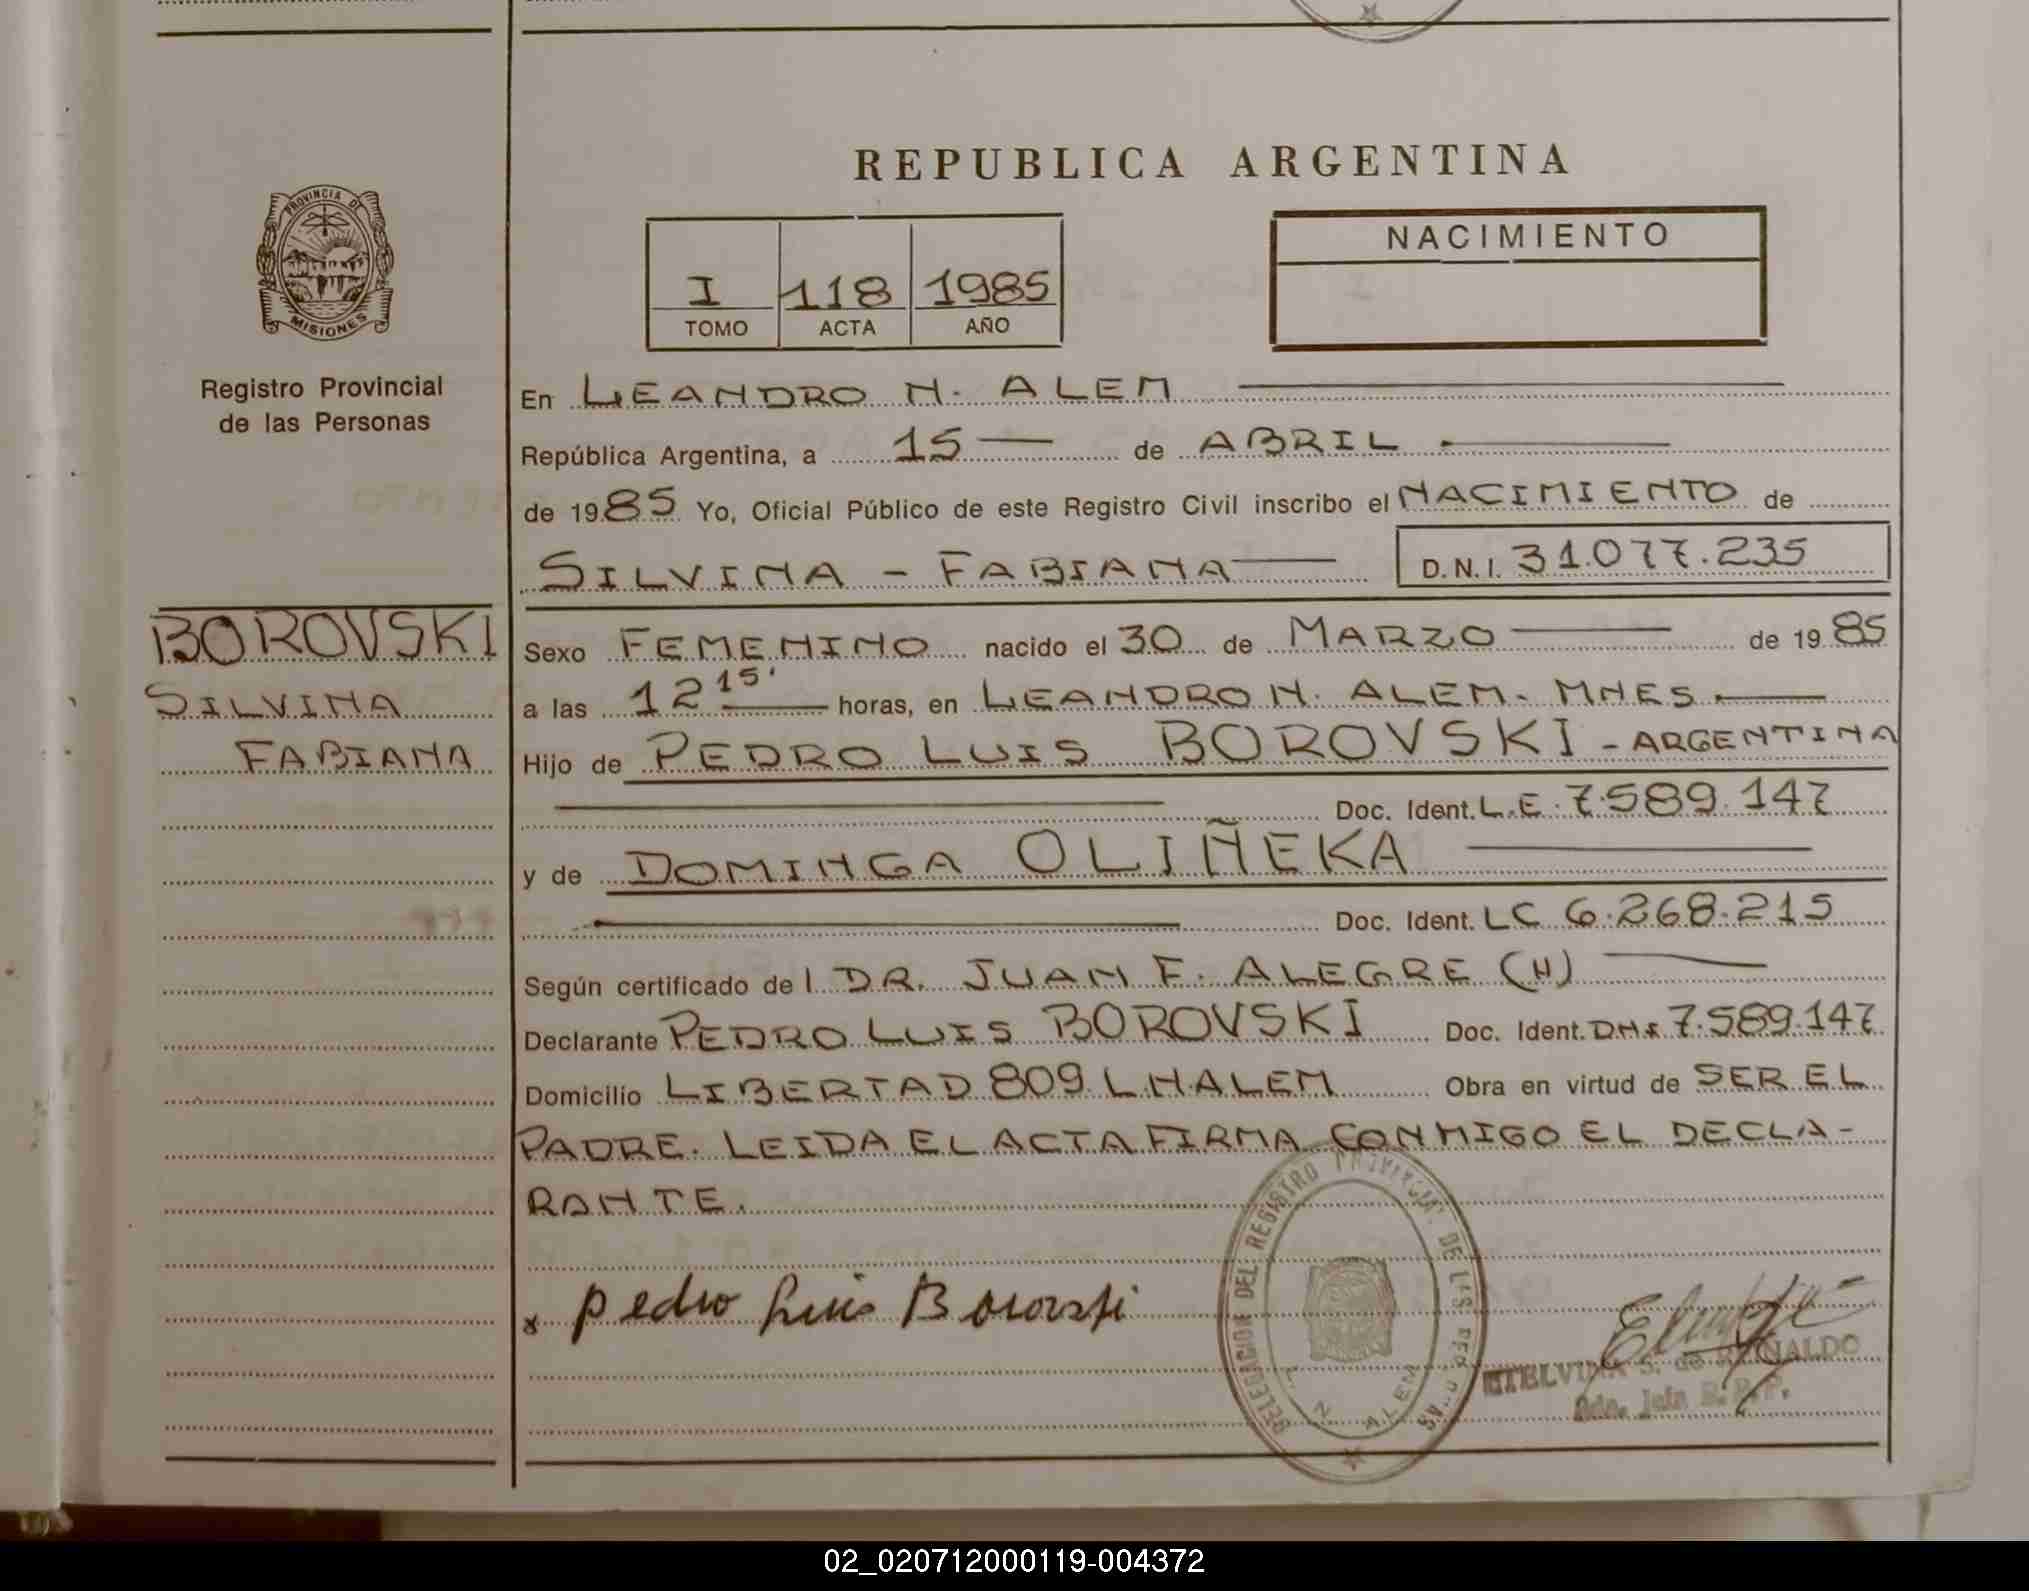 REPUBLICA ARGENTINA
PROVINCIA DE
MISIONES
Registro Provincial
de las Personas
I 118 1985
TOMO ACTA AÑO
NACIMIENTO
En LEANDRO N. ALEM
República Argentina, a 15 de ABRIL
de 1985 Yo, Oficial Público de este Registro Civil inscribo el NACIMIENTO de
SILVINA - FABIANA D.N.I. 31.077.235
BOROVSKI
SILVINA
FABIANA
Sexo FEMENINO nacido el 30 de MARZO de 1985
a las 12 15' horas, en LEANDRO N. ALEM - MNES.
Hijo de PEDRO LUIS BOROVSKI - ARGENTINA
Doc. Ident. L.E. 7.589.147
y de DOMINGA OLIÑEKA
Doc. Ident. LC 6.268.215
Según certificado de l DR. JUAN F. ALEGRE (H)
Declarante PEDRO LUIS BOROVSKI Doc. Ident. DNI. 7.589.147
Domicilio LIBERTAD 809 L.N.ALEM Obra en virtud de SER EL
PADRE. LEIDA EL ACTA FIRMA CONMIGO EL DECLA-
RANTE.
x Pedro Luis Borovski
DELEGACION DEL REGISTRO PROVINCIAL DE LAS PERSONAS
L. N. ALEM
ETELVINA S. de
R.P.P.
02_020712000119-004372